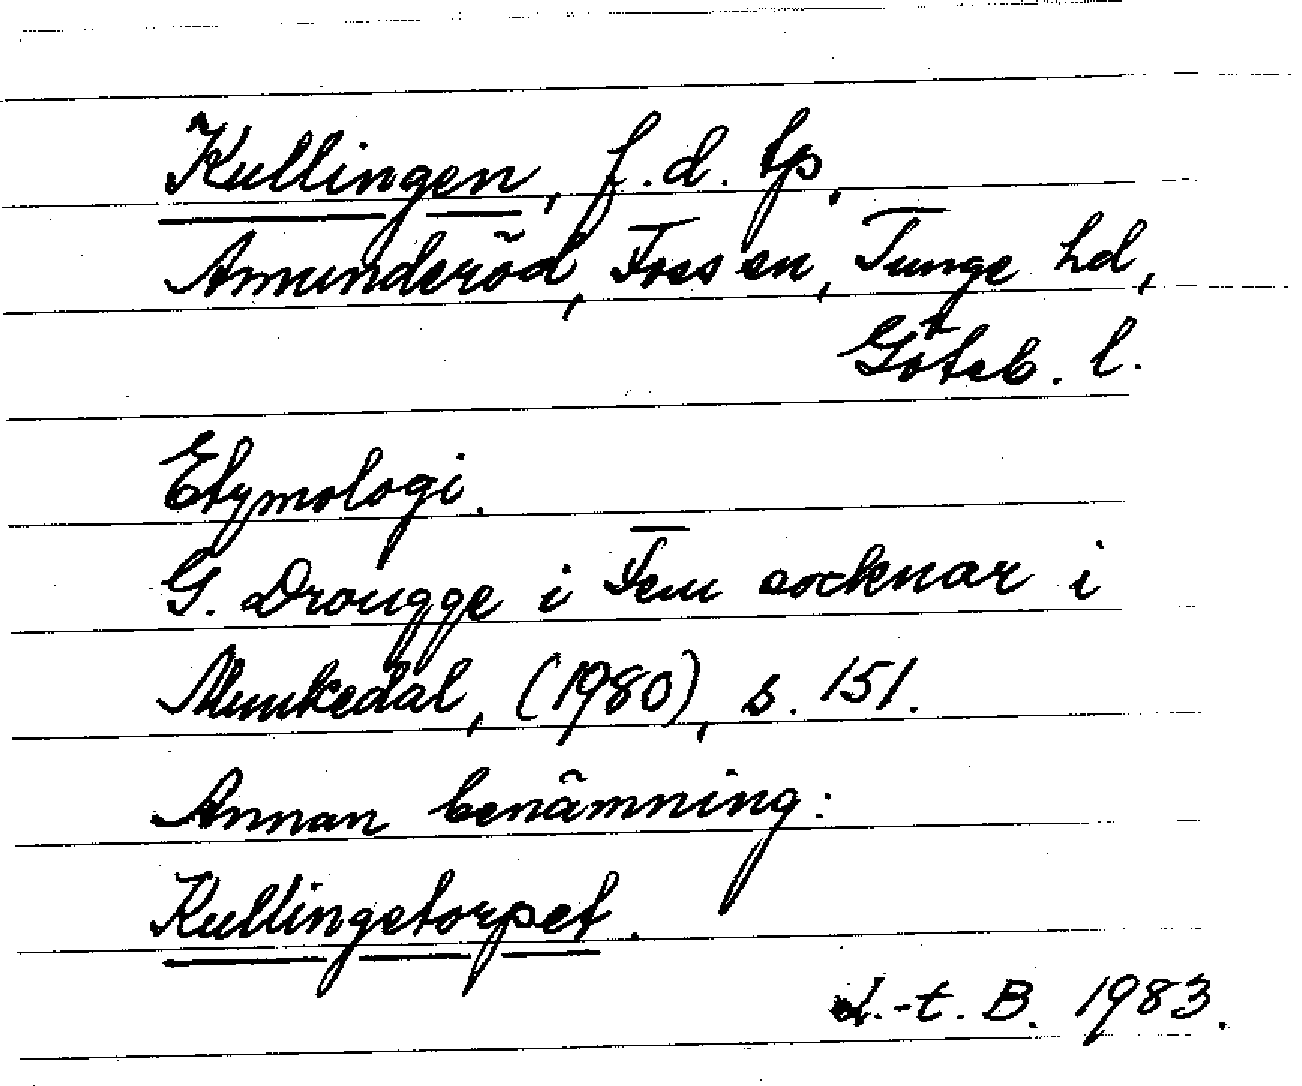 Kullingen, f.d. tp,
Amunderöd, Foss sn, Tunge hd,
Göteb. l.
Etymologi.
G. Drougge i Fem socknar i
Munkedal, (1980), s. 151.
Annan benämning:
Kullingetorpet.
L.-t. B. 1983.